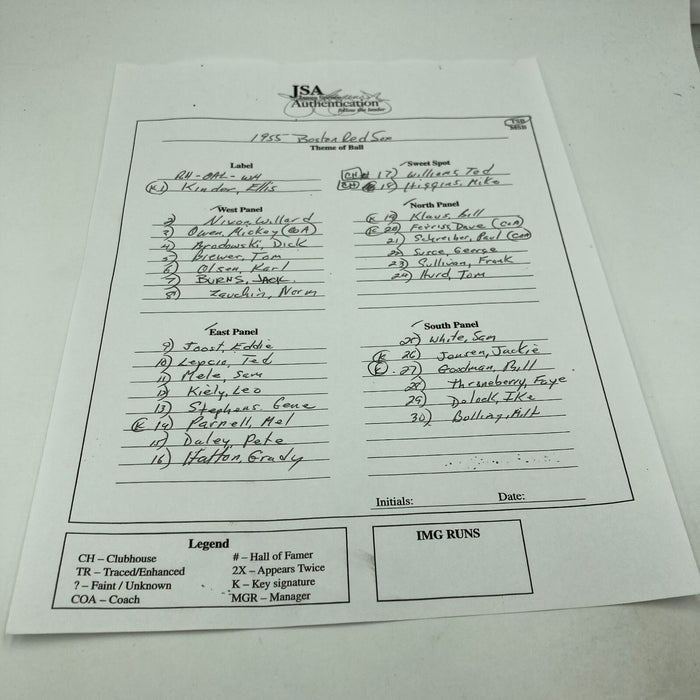 JSA
Authentication
follow the leader
TSB
MSB
1955 Boston Red Sox
Theme of Ball
Label
RH-OAL-WH
K 1) Kinder, Ellis
West Panel
2) Nixon, Willard
3) Owen, Mickey (COA)
4) Brodowski, Dick
5) Brewer, Tom
6) Olsen, Karl
7) BURNS, JACK
8) Zauchin, Norm
East Panel
9) Joost, Eddie
10) Lepcio, Ted
11) Mele, Sam
12) Kiely, Leo
13) Stephens, Gene
K 14) Parnell, Mel
15) Daley, Pete
16) Hatton, Grady
Sweet Spot
CH # 17) Williams, Ted
CH 18) Higgins, Mike
North Panel
K 19) Klaus, Bill
K 20) Ferriss, Dave (COA)
21) Schreiber, Paul (COA)
22) Susce, George
23) Sullivan, Frank
24) Hurd, Tom
South Panel
25) White, Sam
K 26) Jensen, Jackie
K 27) Goodman, Bill
28) Throneberry, Faye
29) Delock, Ike
30) Bolling, Milt
Initials: Date:
Legend
CH – Clubhouse
TR – Traced/Enhanced
? – Faint / Unknown
COA – Coach
# – Hall of Famer
2X – Appears Twice
K – Key signature
MGR – Manager
IMG RUNS